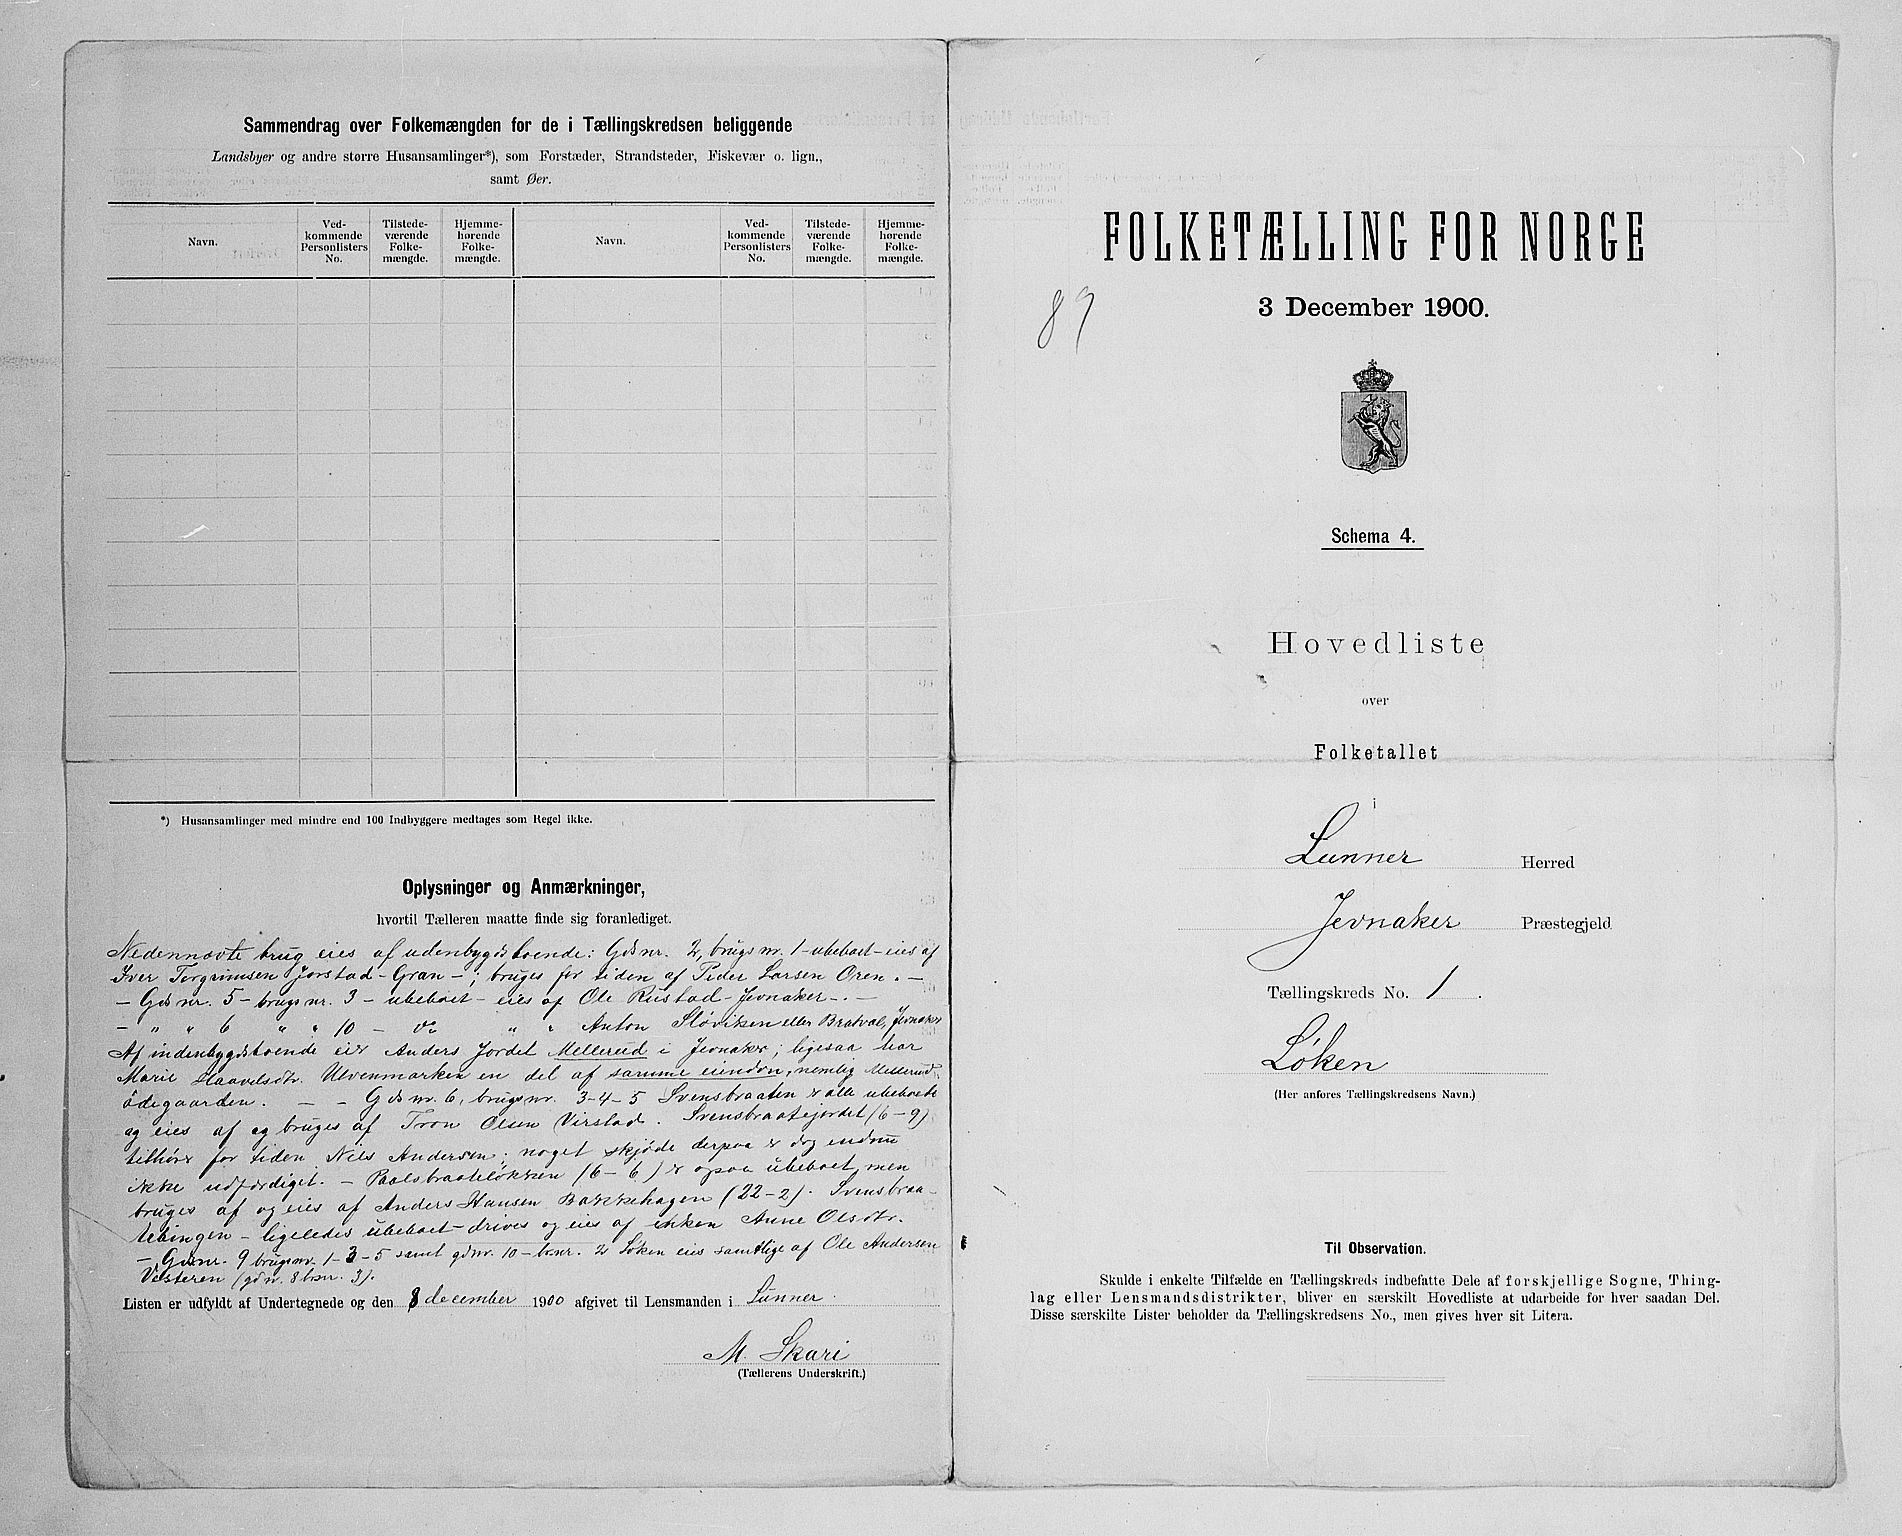 Sammendrag over Folkemængden for de i Tællingskredsen beliggende
Landsbyer og andre større Husansamlinger*), som Forstæder, Strandsteder, Fiskevær o. lign.,
samt Øer.
Navn. Ved-kommende Personlisters No. Tilstede-værende Folke-mængde. Hjemme-hørende Folke-mængde. Navn. Ved-kommende Personlisters No. Tilstede-værende Folke-mængde. Hjemme-hørende Folke-mængde.
*) Husansamlinger med mindre end 100 Indbyggere medtages som Regel ikke.
Oplysninger og Anmærkninger,
hvortil Tælleren maatte finde sig foranlediget.
Nedennævte brug eies af udenbygdsboende: Gdsnr. 2, brugsnr. 1 - ubeboet - eies af
Iver Torgrimsen Jorstad - Gran - ; bruges for tiden af Peder Larsen Oren. -
- Gdsnr. 5 - brugsnr. 3 - ubeboet - eies af Ole Rustad - Jevnaker -. -
- " " 6 " " 10 - do " " Anton Sløviken eller Bratval, Jevnaker
Af indenbygdsboende eier Anders Jordet Mellerud i Jevnaker; ligesaa har
Marie Haavelsdtr. Ulvenmarken en del af samme eiendom, nemlig Mellerud
ødegaarden. - - Gdsnr. 6, brugsnr. 3-4-5 Svensbraaten er alle ubeboete
og eies af og bruges af Tron Olsen Virstad. Svensbraatejordet (6-9)
tilhører for tiden Niels Andersen; noget skjøde derpaa er dog endnu
ikke udfærdiget. - Paalsbraateløkken (6-6) er ogsaa ubeboet, men
bruges af og eies af Anders Hansen Bakkehagen (22-2). Svensbraa-
tebingen - ligeledes ubeboet - drives og eies af enken Anne Olsdtr.
- Gdsnr. 9 brugsnr. 1-3-5 samt gdnr. 10 - brnr. 2 Løken eies samtlige af Ole Andersen
Vesteren (gdnr. 8 brnr. 3).
Listen er udfyldt af Undertegnede og den 8 december 1900 afgivet til Lensmanden i Lunner.
M. Skari
(Tællerens Underskrift.)
89
FOLKETÆLLING FOR NORGE
3 December 1900.
Schema 4.
Hovedliste
over
Folketallet
i
Lunner Herred
Jevnaker Præstegjeld
Tællingskreds No. 1.
Løken
(Her anføres Tællingskredsens Navn.)
Til Observation.
Skulde i enkelte Tilfælde en Tællingskreds indbefatte Dele af forskjellige Sogne, Thing-
lag eller Lensmandsdistrikter, bliver en særskilt Hovedliste at udarbeide for hver saadan Del.
Disse særskilte Lister beholder da Tællingskredsens No., men gives hver sit Litera.